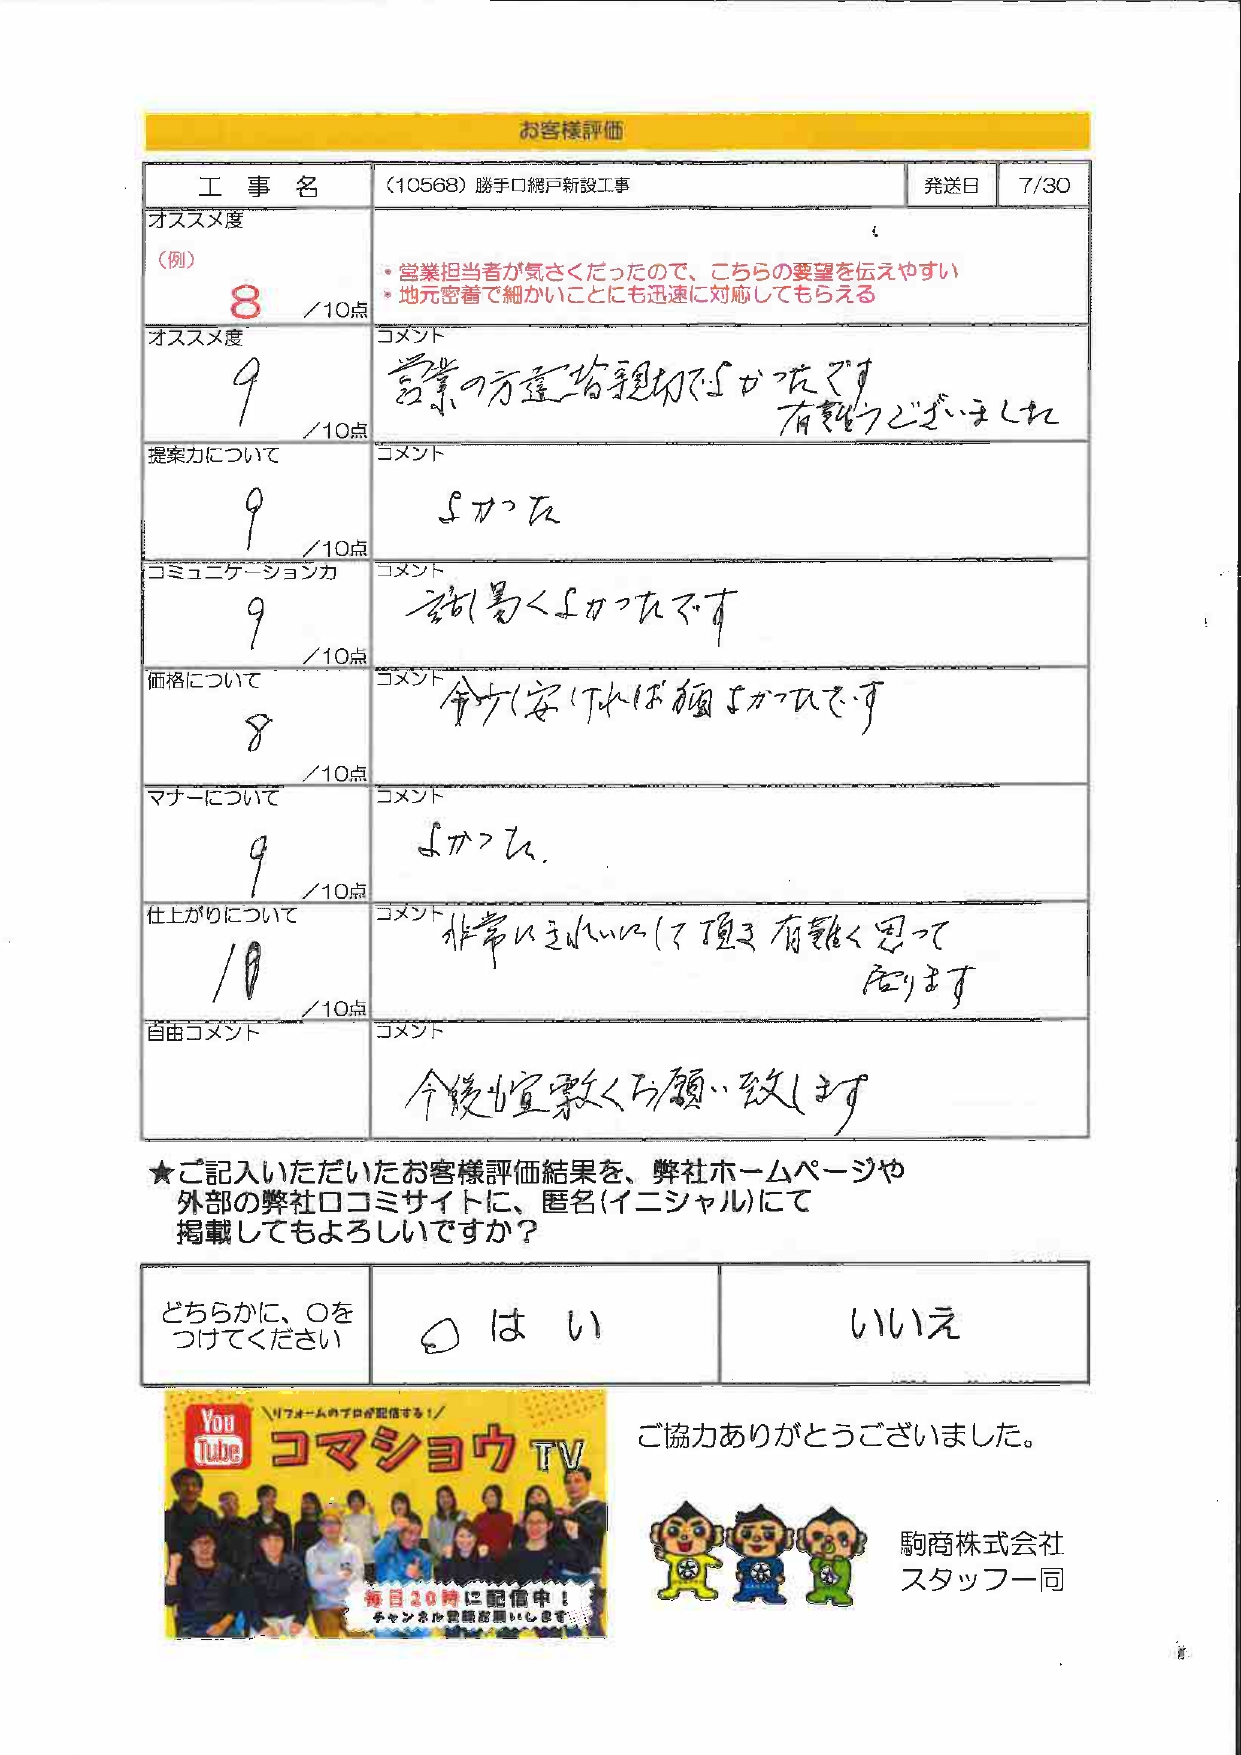 お客様評価
工事名 (10568) 勝手口網戸新設工事 発送日 7/30
オススメ度
(例)
8 /10点
・営業担当者が気さくだったので、こちらの要望を伝えやすい
・地元密着で細かいことにも迅速に対応してもらえる
オススメ度
9 /10点
コメント
営業の方達皆親切でよかったです
有難うございました
提案力について
9 /10点
コメント
よかった
コミュニケーション力
9 /10点
コメント
話し易くよかったです
価格について
8 /10点
コメント
少し安ければ猶よかったです
マナーについて
9 /10点
コメント
よかった.
仕上がりについて
10 /10点
コメント
非常にきれいにして頂き有難く思って
居ります
自由コメント
コメント
今後も宜敷くお願い致します
★ご記入いただいたお客様評価結果を、弊社ホームページや
外部の弊社口コミサイトに、匿名(イニシャル)にて
掲載してもよろしいですか?
どちらかに、○を
つけてください
○ はい
いいえ
You
Tube
\リフォームのプロが配信する!/
コマショウTV
毎日20時に配信中!
チャンネル登録お願いします
ご協力ありがとうございました。
駒商株式会社
スタッフ一同